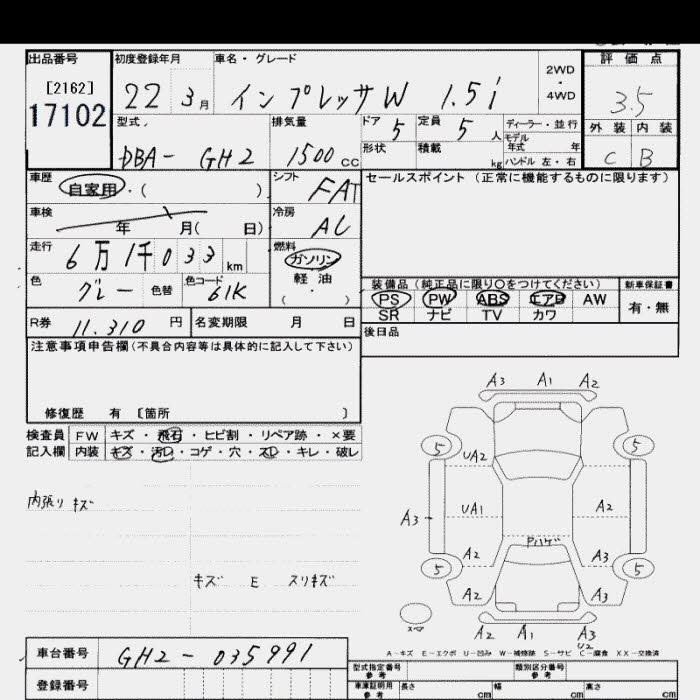 出品番号 初度登録年月 車名・グレード 2WD・4WD 評価点
[2162]
17102
22 3月 インプレッサW 1.5i 3.5
型式 排気量 ドア 定員 ディーラー・並行 外装 内装
DBA- GH2 1500cc 5 5人 モデル年式 年
形状 積載 kg ハンドル 左・右 C B
車歴 自家用・( ) シフト FAT セールスポイント (正常に機能するものに限ります)
車検 年 月( 日) 冷房 AC
走行 6万1千033km 燃料 ガソリン 軽油 ( ・ )
色 グレー 色替 色コード 61K
装備品 (純正品に限り〇をつけてください) 新車保証書
PS PW ABS エアB AW 有・無
SR ナビ TV カワ
R券 11,310円 名変期限 月 日 後日品
注意事項申告欄(不具合内容等は具体的に記入して下さい)
修復歴 有 [箇所 ]
検査員 FW キズ・飛石・ヒビ割・リペア跡・×要
記入欄 内装 キズ・汚レ・コゲ・穴・スレ・キレ・破レ
内張り キズ
キズ E スリキズ
A3 A1 A2
5 5
UA2
A3 UA1 A2
Pハゲ
A2 A3
5 5
A2 A3
スペア
A2 A1 A3
U2
A-キズ E-エクボ U-凹み W-補修跡 S-サビ C-腐食 XX-交換済
車台番号 GH2-035991
登録番号
型式指定番号 参考 類別区分番号 参考
車庫証明用 参考 長さ cm 幅 cm 高さ cm